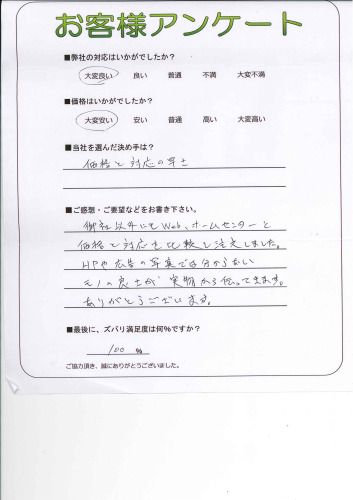 お客様アンケート
■弊社の対応はいかがでしたか?
大変良い 良い 普通 不満 大変不満
■価格はいかがでしたか?
大変安い 安い 普通 高い 大変高い
■当社を選んだ決め手は?
価格と対応の早さ
■ご感想・ご要望などをお書き下さい。
御社以外にもWeb、ホームセンターと
価格と対応を比較し注文しました。
HPや広告の写真では分からない
モノの良さが実物から伝ってきます。
ありがとうございます。
■最後に、ズバリ満足度は何%ですか?
100 %
ご協力頂き、誠にありがとうございました。